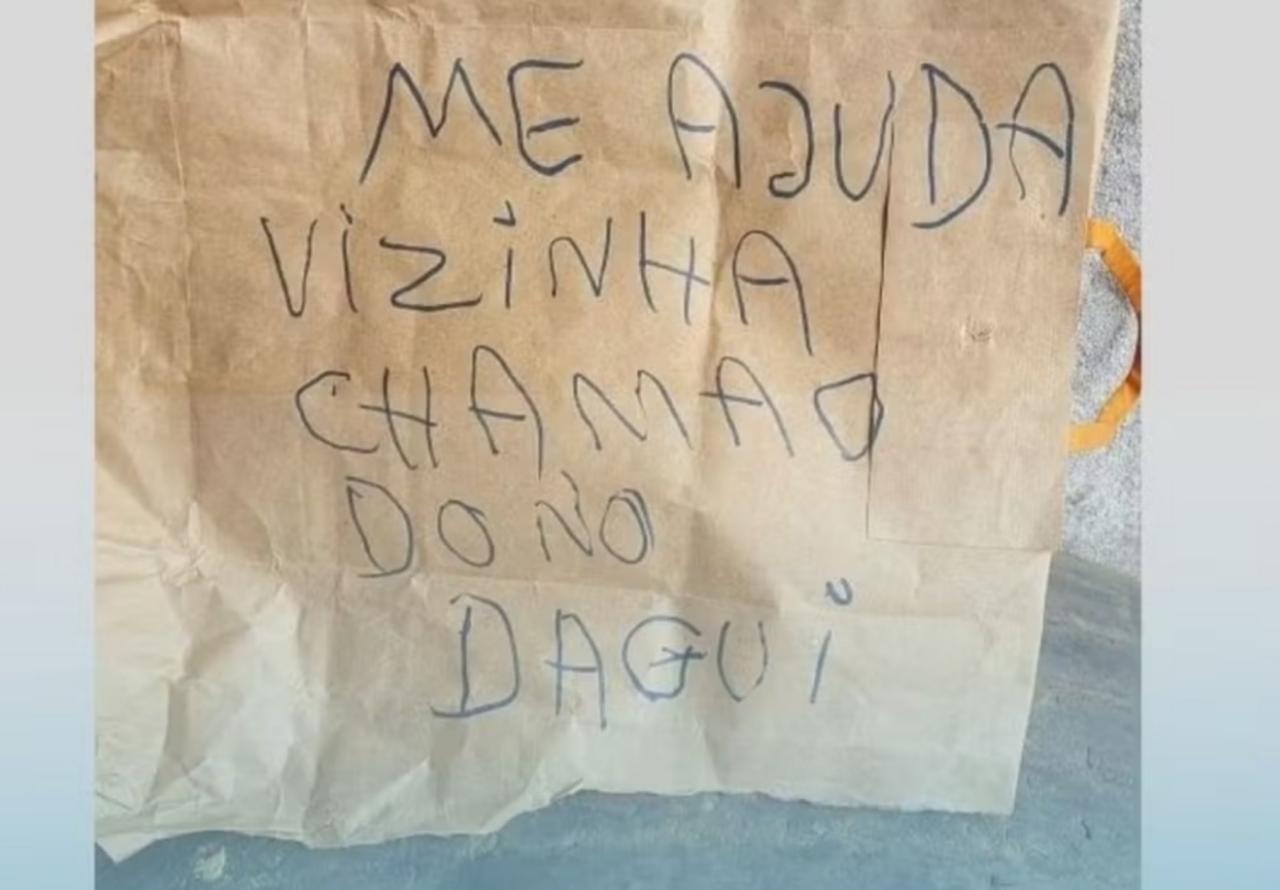 ME AJUDA
VIZINHA
CHAMA O
DONO
DAGUI